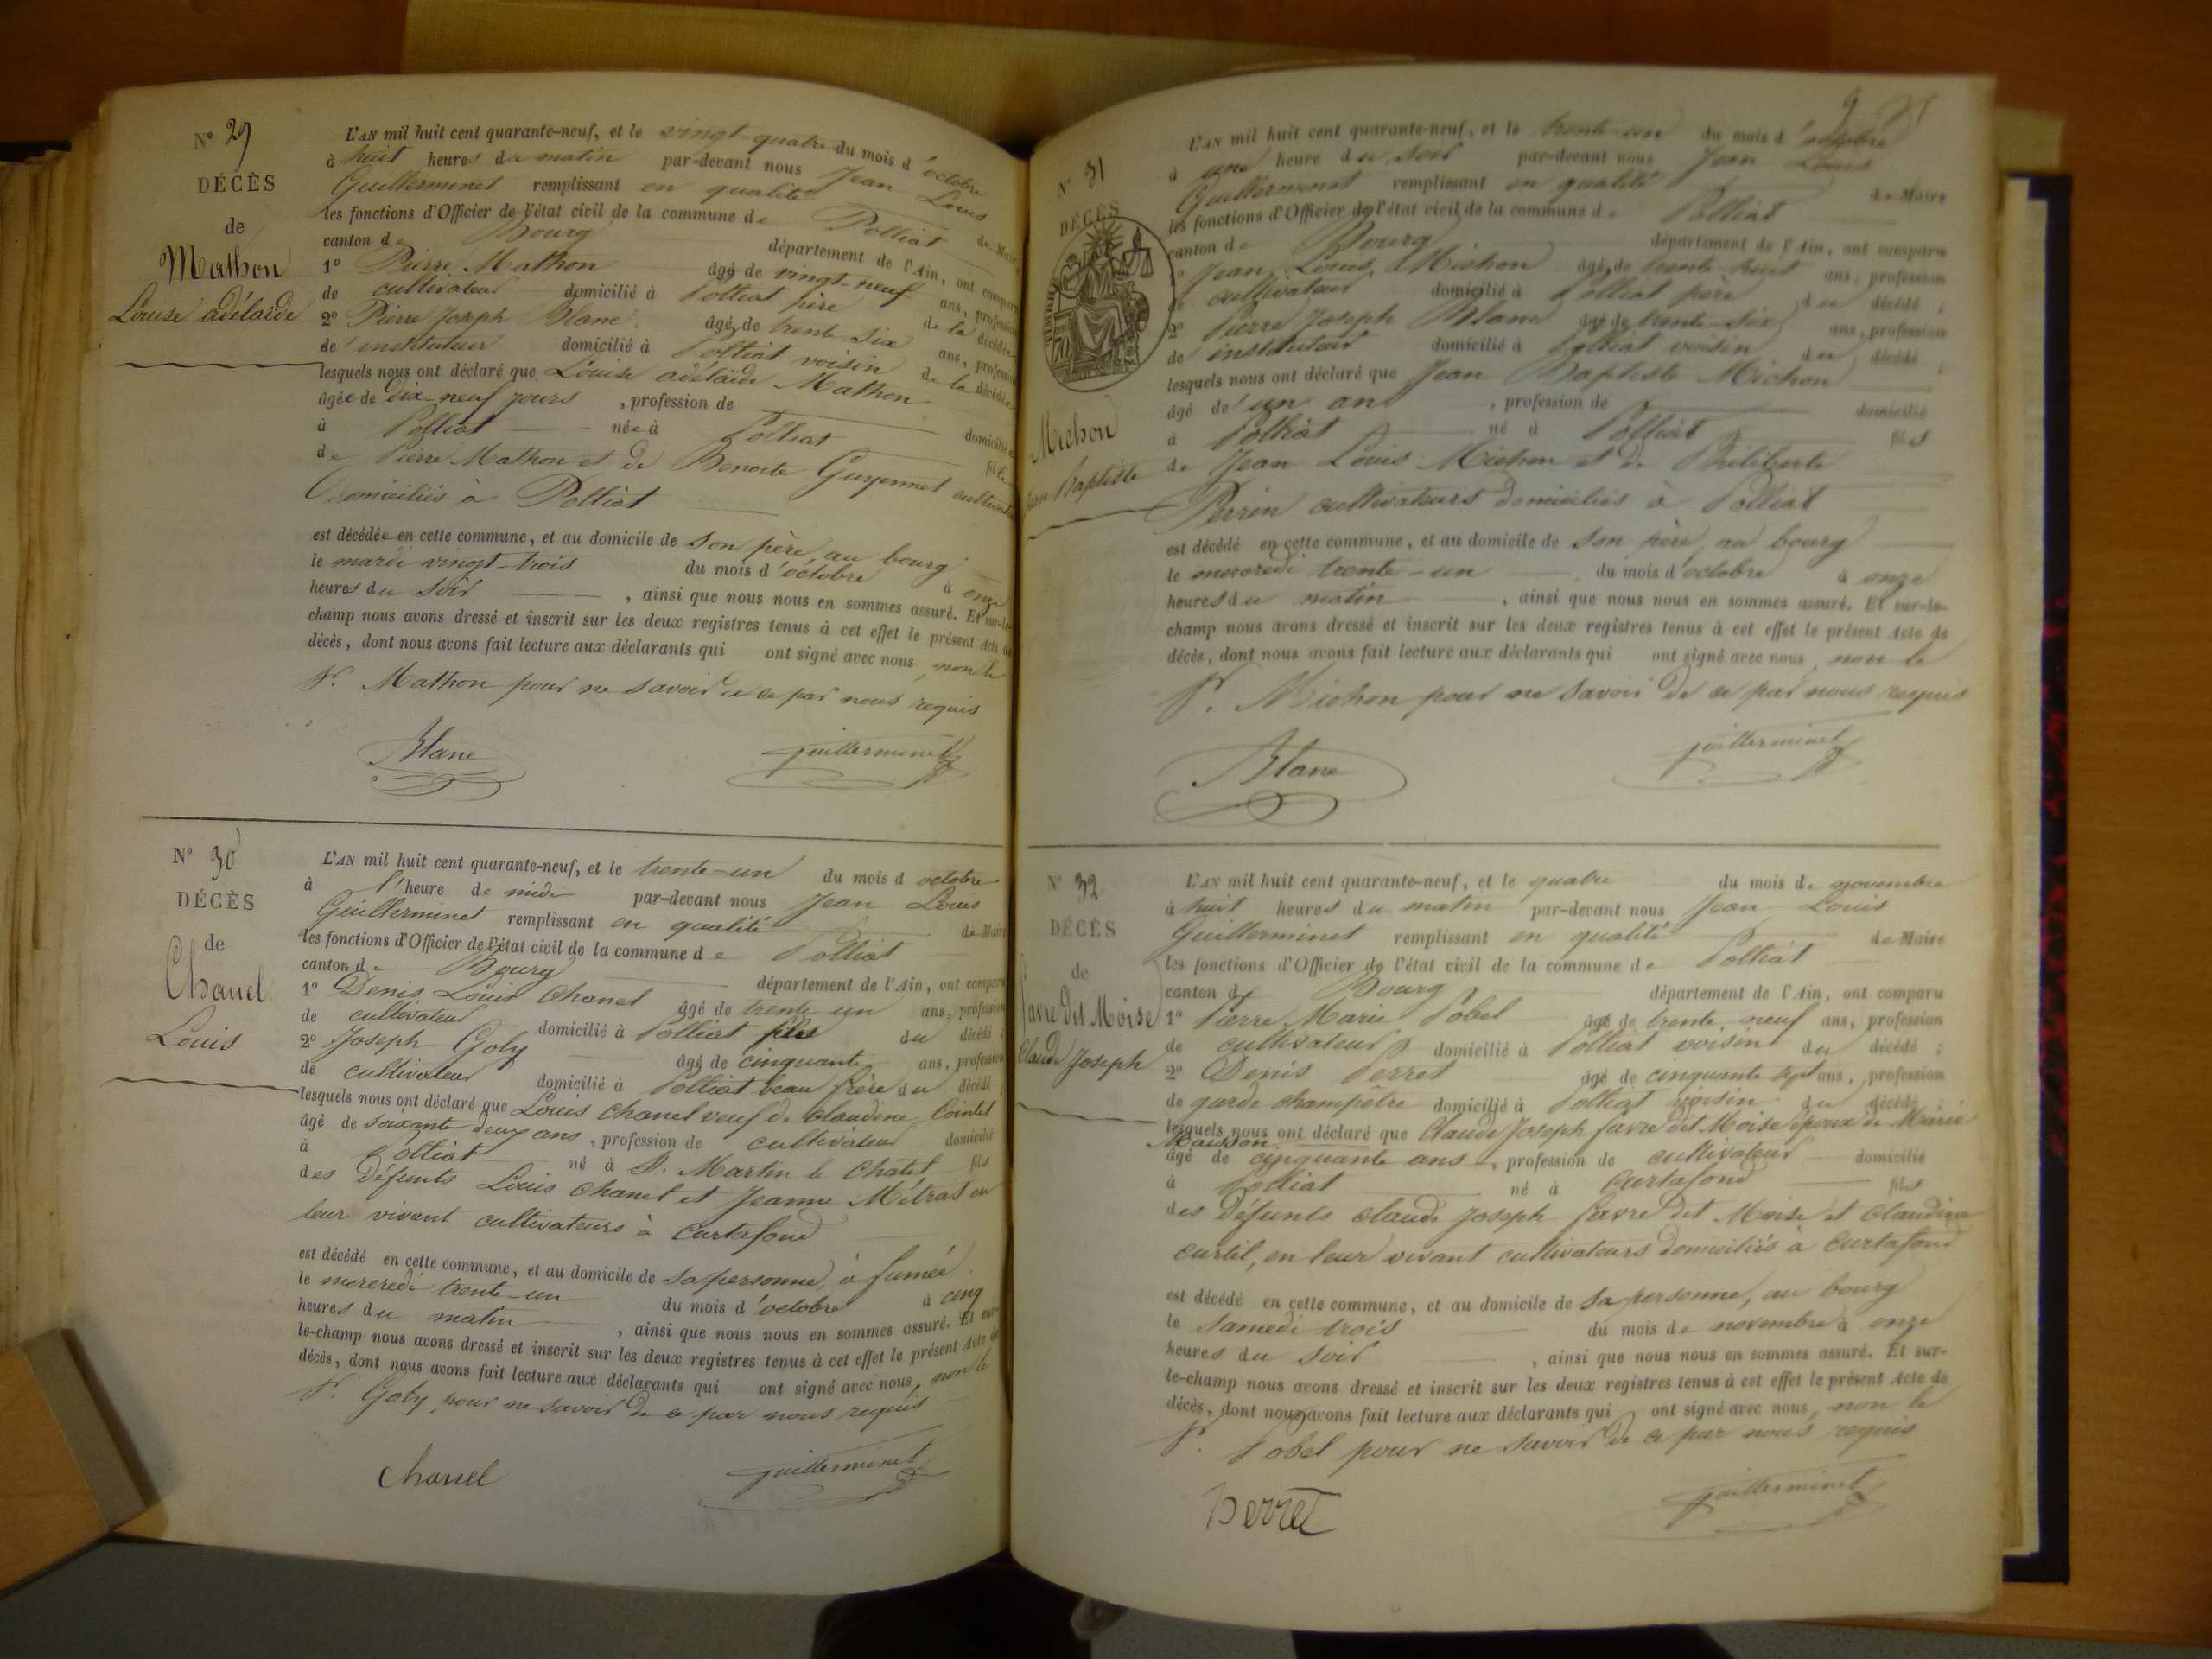 N° 29
DÉCÈS
de
Mathon
Louise adélaïde
L'AN mil huit cent quarante-neuf, et le vingt-quatre du mois d'octobre
à huit heures du matin par-devant nous Jean Louis
Guillerminet remplissant en qualité de Maire
les fonctions d'Officier de l'état civil de la commune de Polliat
canton de Bourg département de l'Ain, ont comparu
1° Pierre Mathon âgé de vingt-neuf ans, profession
de cultivateur domicilié à Polliat père de la décédée
2° Pierre Joseph Blanc âgé de trente six ans, profession
de instituteur domicilié à Polliat voisin de la décédée
lesquels nous ont déclaré que Louise adélaïde Mathon
âgée de dix-neuf jours , profession de domiciliée
à Polliat née à Polliat fille
de Pierre Mathon et de Benoite Guyonnet cultivateurs
Domiciliés à Polliat
est décédée en cette commune, et au domicile de son père, au bourg
le mardi vingt-trois du mois d'octobre à onze
heures du soir , ainsi que nous nous en sommes assuré. Et sur-le-
champ nous avons dressé et inscrit sur les deux registres tenus à cet effet le présent Acte de
décès, dont nous avons fait lecture aux déclarants qui ont signé avec nous, non le
Sr. Mathon pour ne savoir de ce par nous requis
Blanc Guillerminet
N° 30
DÉCÈS
de
Chanel
Louis
L'AN mil huit cent quarante-neuf, et le trente-un du mois d octobre
à l'heure de midi par-devant nous Jean Louis
Guillerminet remplissant en qualité de Maire
les fonctions d'Officier de l'état civil de la commune de Polliat
canton de Bourg département de l'Ain, ont comparu
1° Denis Louis Chanel âgé de trente un ans, profession
de cultivateur domicilié à Polliat fils du décédé ;
2° Joseph Goly âgé de cinquante ans, profession
de cultivateur domicilié à Polliat beau frère du décédé ;
lesquels nous ont déclaré que Louis Chanel veuf de Claudine Cointet
âgé de soixante deux ans , profession de cultivateur domicilié
à Polliat né à St. Martin le Châtel fils
des défunts Louis Chanel et Jeanne Métrat en
leur vivant cultivateurs à Curtafond
est décédé en cette commune, et au domicile de sa personne, à fumée
le mercredi trente-un du mois d'octobre à cinq
heures du matin , ainsi que nous nous en sommes assuré. Et sur-
le-champ nous avons dressé et inscrit sur les deux registres tenus à cet effet le présent Acte de
décès, dont nous avons fait lecture aux déclarants qui ont signé avec nous, non le
Sr. Goly pour ne savoir de ce par nous requis
Chanel Guillerminet
9
N° 31
DÉCÈS
Michon
Jean Baptiste
L'AN mil huit cent quarante-neuf, et le trente-un du mois d'octobre
à une heure du soir par-devant nous Jean Louis
Guillerminet remplissant en qualité de Maire
les fonctions d'Officier de l'état civil de la commune de Polliat
canton de Bourg département de l'Ain, ont comparu
1° Jean Louis Michon âgé de trente-huit ans, profession
de cultivateur domicilié à Polliat père du décédé ;
2° Pierre Joseph Blanc âgé de trente-six ans, profession
de instituteur domicilié à Polliat voisin du décédé ;
lesquels nous ont déclaré que Jean Baptiste Michon
âgé de un an , profession de domicilié
à Polliat né à Polliat fils
de Jean Louis Michon et de Philiberte
Perrin cultivateurs domiciliés à Polliat
est décédé en cette commune, et au domicile de son père, au bourg
le mercredi trente-un du mois d'octobre à onze
heures du matin , ainsi que nous nous en sommes assuré. Et sur-le-
champ nous avons dressé et inscrit sur les deux registres tenus à cet effet le présent Acte de
décès, dont nous avons fait lecture aux déclarants qui ont signé avec nous, non le
Sr. Michon pour ne savoir de ce par nous requis
Blanc Guillerminet
N° 32
DÉCÈS
de
Favre dit Moise
Claude Joseph
L'AN mil huit cent quarante-neuf, et le quatre du mois de novembre
à huit heures du matin par-devant nous Jean Louis
Guillerminet remplissant en qualité de Maire
les fonctions d'Officier de l'état civil de la commune de Polliat
canton de Bourg département de l'Ain, ont comparu
1° Pierre Marie Pobel âgé de trente neuf ans, profession
de cultivateur domicilié à Polliat voisin du décédé ;
2° Denis Perret âgé de cinquante sept ans, profession
de garde champêtre domicilié à Polliat voisin du décédé ;
lesquels nous ont déclaré que Claude Joseph favre dit Moise époux de Marie
Maisson
âgé de cinquante ans , profession de cultivateur domicilié
à Polliat né à Curtafond fils
des défunts Claude Joseph favre dit Moise et Claudine
curtil, en leur vivant cultivateurs domiciliés à Curtafond
est décédé en cette commune, et au domicile de sa personne, au bourg
le samedi trois du mois de novembre à onze
heures du soir , ainsi que nous nous en sommes assuré. Et sur-
le-champ nous avons dressé et inscrit sur les deux registres tenus à cet effet le présent Acte de
décès, dont nous avons fait lecture aux déclarants qui ont signé avec nous, non le
Sr. Pobel pour ne savoir de ce par nous requis
Perret Guillerminet